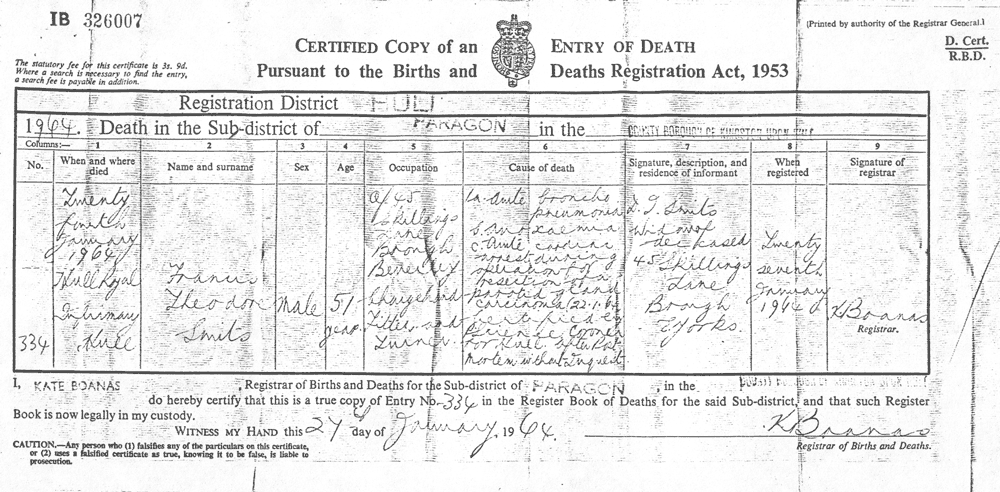 IB 326007
(Printed by authority of the Registrar General.)
CERTIFIED COPY of an ENTRY OF DEATH
D. Cert.
R.B.D.
The statutory fee for this certificate is 3s. 9d.
Where a search is necessary to find the entry,
a search fee is payable in addition.
Pursuant to the Births and Deaths Registration Act, 1953
Registration District HULL
1964. Death in the Sub-district of PARAGON in the COUNTY BOROUGH OF KINGSTON UPON HULL
Columns:— 1 2 3 4 5 6 7 8 9
No.
When and where
died
Name and surname
Sex
Age
Occupation
Cause of death
Signature, description, and
residence of informant
When
registered
Signature of
registrar
334
Twenty
fourth
January
1964
Hull Royal
Infirmary
Hull
Francis
Theodor
Smits
Male
51
years
Of 45
Skillings
Lane
Brough
Beverley
Fitter and
Turner
1a. Acute broncho
pneumonia
b. anoxaemia
c. Acute cardiac
arrest during
operation of
resection of
parotid gland
carcinoma (22.1.64
Certified by
Coroner
for Hull after Post
Mortem without Inquest
Smits
Widow of
deceased
45 Skillings
Lane
Brough
E Yorks.
Twenty
seventh
January
1964
K Boanas
Registrar.
I, KATE BOANAS , Registrar of Births and Deaths for the Sub-district of PARAGON , in the COUNTY BOROUGH OF KINGSTON UPON HULL
do hereby certify that this is a true copy of Entry No. 334 in the Register Book of Deaths for the said Sub-district, and that such Register
Book is now legally in my custody.
WITNESS MY HAND this 27 day of January, 1964.
K Boanas
Registrar of Births and Deaths.
CAUTION.—Any person who (1) falsifies any of the particulars on this certificate,
or (2) uses a falsified certificate as true, knowing it to be false, is liable to
prosecution.